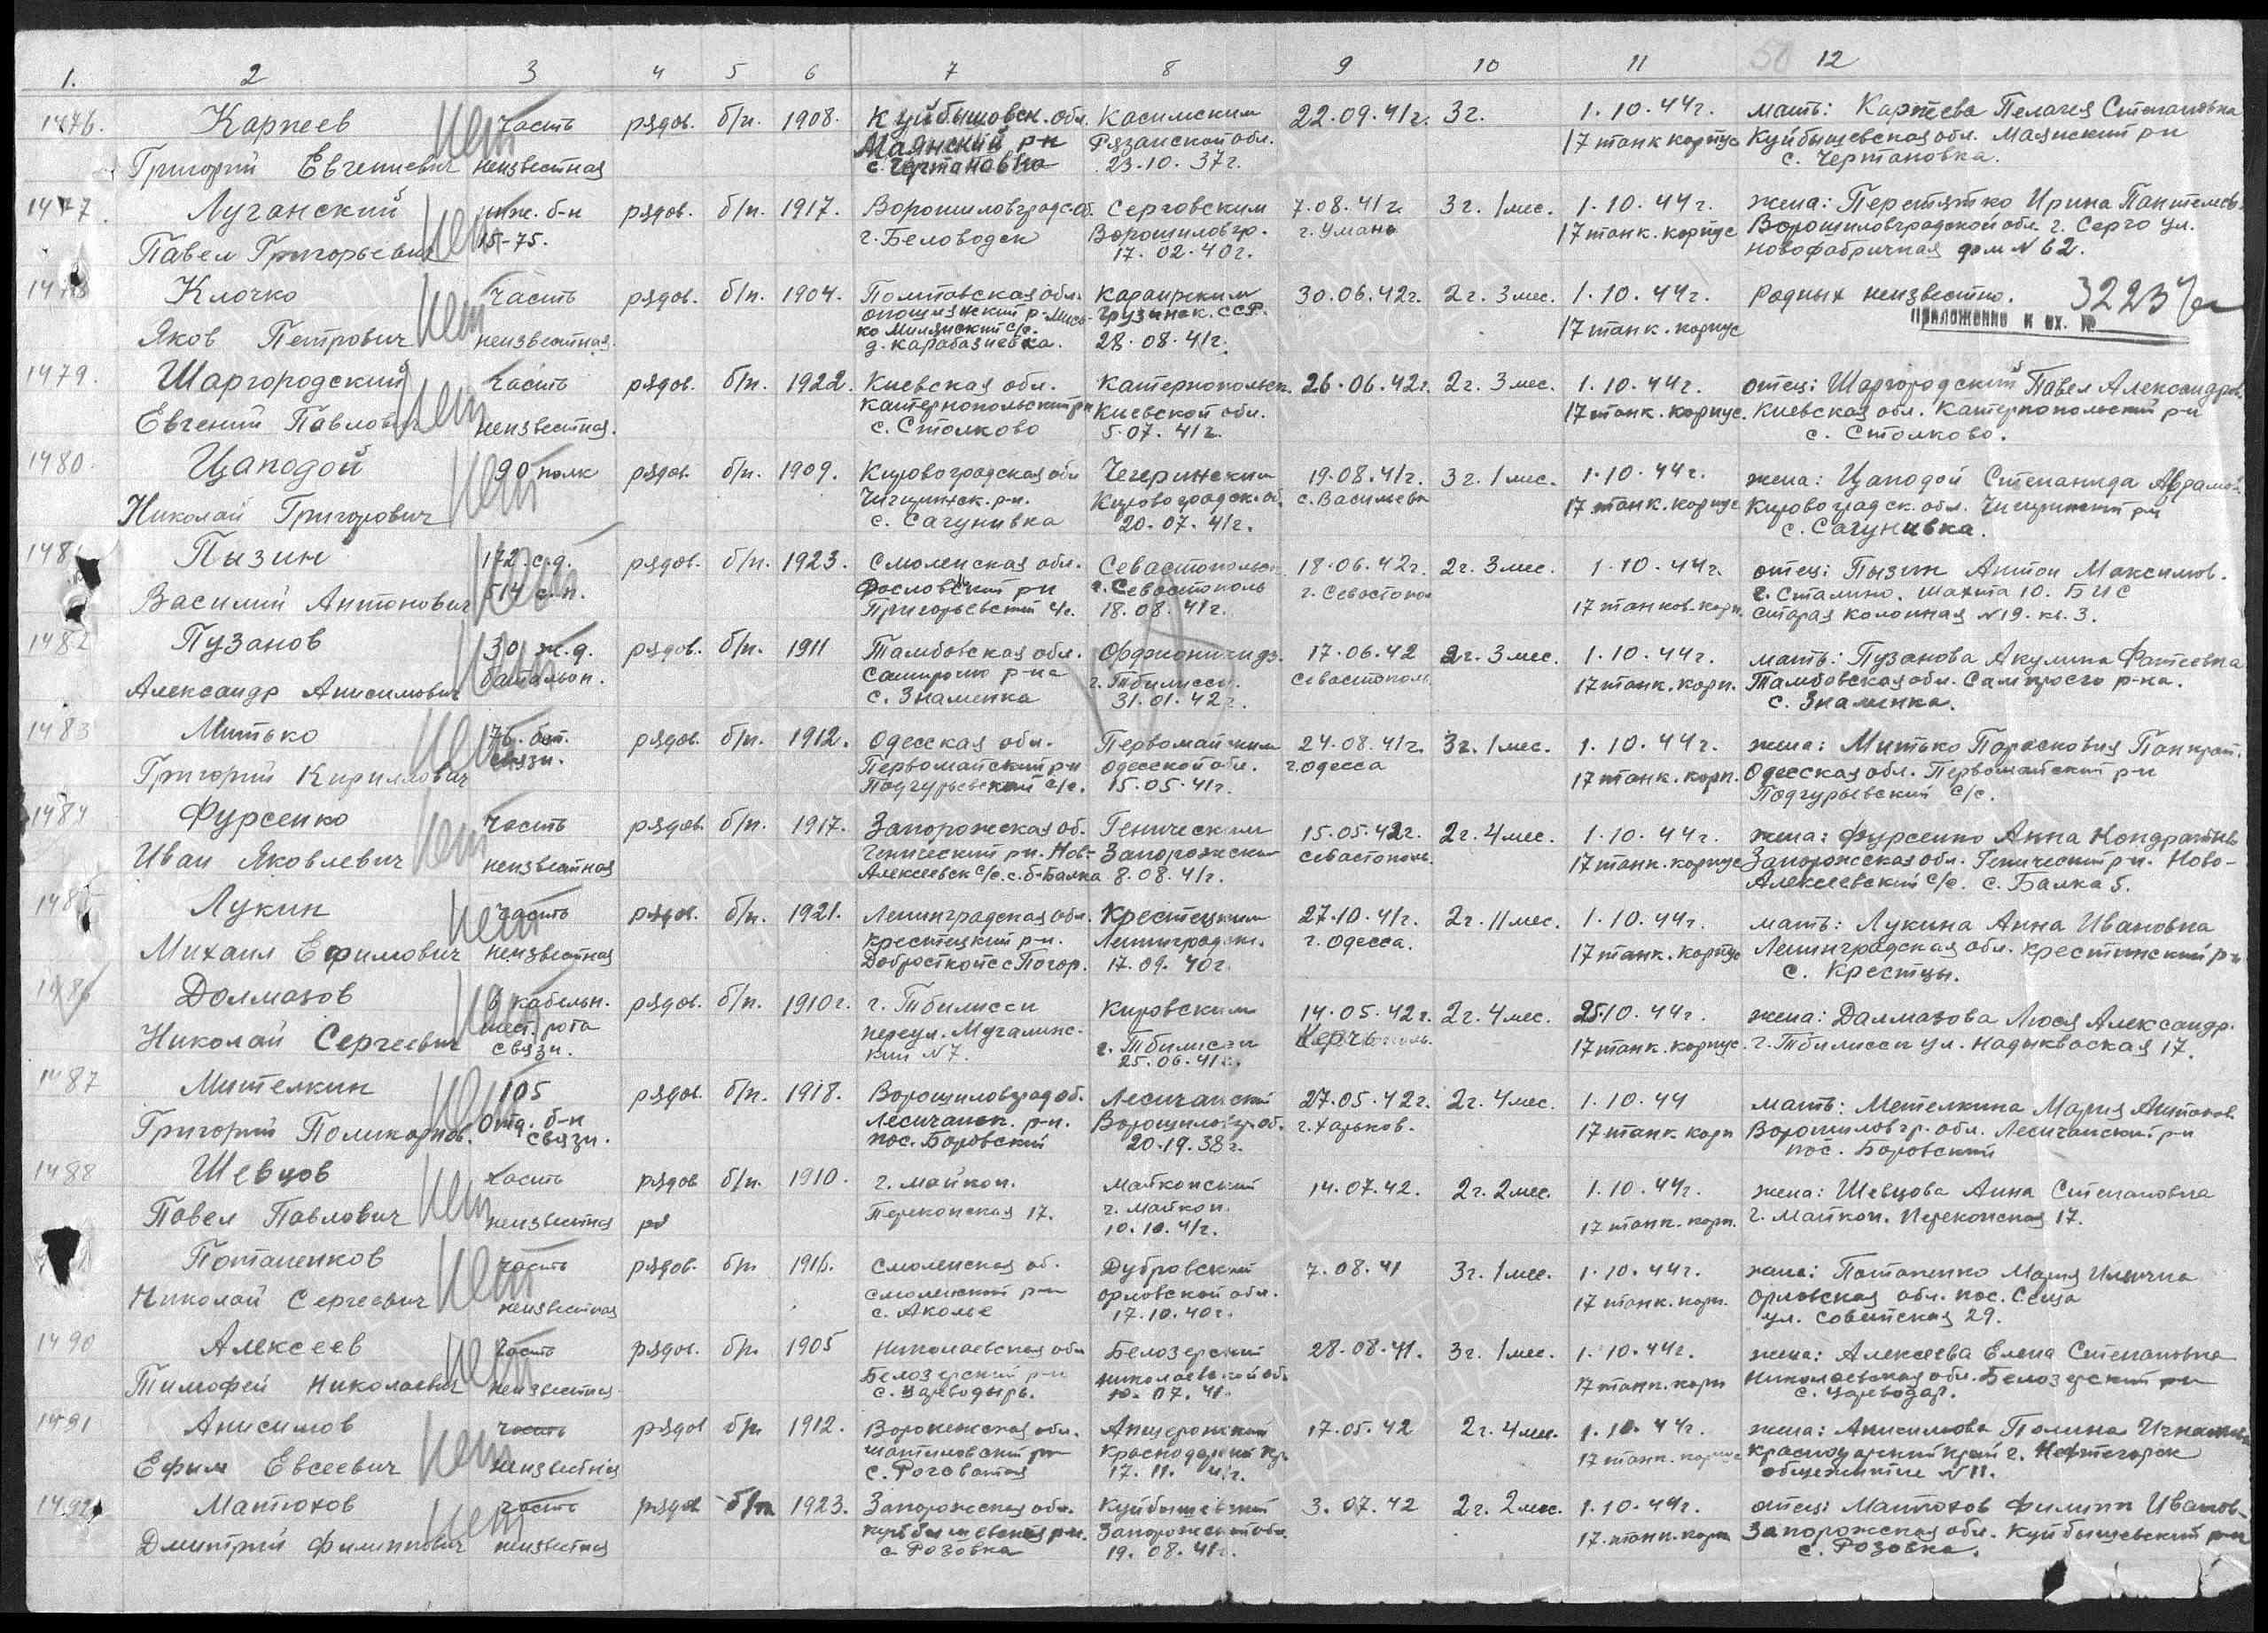 50
1. 2 3 4 5 6 7 8 9 10 11 12
1476. Карпеев часть рядов. б/п. 1908. Куйбышовск. обл. Касимским 22.09.41г. 3г. 1.10.44г. мать: Карпеева Пелагея Степановна
Григорий Евгениевич нет неизвестная Маянский р-н Рязанской обл. 17 танк корпус Куйбышевская обл. Маянский р-н
с. Чертановка 23.10.37г. с. Чертановка.
1477. Луганский нет инж. б-н рядов. б/п. 1917. Ворошиловградс. об. Серговским 7.08.41г. 3г. 1мес. 1.10.44г. жена: Перетятко Ирина Пантелеев.
Павел Григорьевич 15-75. г. Беловодск Ворошиловгр. г. Умань 17 танк. корпус Ворошиловградской обл. г. Серго ул.
17.02.40г. Новофабричная дом № 62.
1478 Клочко нет часть рядов. б/п. 1904. Полтавская обл. Караирским 30.06.42г. 2г. 3мес. 1.10.44г. Родных неизвестно. 3223
Яков Петрович неизвестная. опошнянский р-н Грузинск. ССР. 17 танк. корпус приложение к вх. №
ко Милянский с/с. 28.08.41г.
д. Карабазиевка.
1479. Шаргородский нет часть рядов. б/п. 1922. Киевская обл. Катернопольск. 26.06.42г. 2г. 3мес. 1.10.44г. отец: Шаргородский Павел Александров.
Евгений Павлович неизвестная. Катернопольский р-н Киевской обл. 17 танк. корпус. Киевская обл. Катернопольский р-н
с. Столково 5.07.41г. с. Столково.
1480. Цаподой нет 90 полк рядов. б/п. 1909. Кировоградская обл Чегеринским 19.08.41г. 3г. 1мес. 1.10.44г. жена: Цаподой Степанида Аврамов.
Николай Григорович Чигиринск. р-н. Кировоградск. об. с. Васильева 17 танк. корпус Кировоградск. обл. Чигиринский р-н
с. Сагунивка 20.07.41г. с. Сагунивка.
148 Пызин нет 172 с.д. рядов. б/п. 1923. Смоленская обл. Севастопольск. 18.06.42г. 2г. 3мес. 1.10.44г. отец: Пызин Антон Максимов.
Василий Антонович 514 с.п. Рословский р-н г. Севастополь г. Севастопол 17 танков. корп. г. Сталино. Шахта 10. БИС
Григорьевский с/с. 18.08.41г. старая колонная №19. кв. 3.
1482 Пузанов нет 30 ж.д. рядов. б/п. 1911 Тамбовская обл. Орджоникидз. 17.06.42 2г. 3мес. 1.10.44г. мать: Пузанова Акулина Фатеевна
Александр Анисимович батальон. Сампрского р-на г. Тбилисси. Севастополь 17 танк. корп. Тамбовская обл. Сампрсого р-на.
с. Знаменка 31.01.42г. с. Знаменка.
1483 Митько нет 76. бат. рядов. б/п. 1912. Одесская обл. Первомайским 24.08.41г. 3г. 1мес. 1.10.44г. жена: Митько Парасковия Панкрат.
Григорий Кириллович связи. Первомайский р-н Одесской обл. г. Одесса 17 танк. корп. Одесская обл. Первомайский р-н
Подгурьевский с/с. 15.05.41г. Подгурьевский с/с.
1484 Фурсенко нет часть рядов. б/п. 1917. Запорожская об. Геническим 15.05.42г. 2г. 4мес. 1.10.44г. жена: Фурсенко Анна Кондратьев
Иван Яковлевич неизвестная Генический р-н. Нов- Запорожским Севастополь. 17 танк. корпус Запорожская обл. Генический р-н. Ново-
Алексеевск с/с. с. б-Балка 8.08.41г. Алексеевский с/с. с. Балка Б.
1485 Лукин нет часть рядов. б/п. 1921. Ленинградская обл. Крестецким 27.10.41г. 2г. 11мес. 1.10.44г. мать: Лукина Анна Ивановна
Михаил Ефимович неизвестная крестецкий р-н. Ленинградск. г. Одесса. 17 танк. корпус Ленинградская обл. крестинский р-н
17.09.40г. с. Крестцы.
1486 Долмазов нет 6 кабельн. рядов. б/п. 1910г. г. Тбилисси Кировским 14.05.42г. 2г. 4мес. 25.10.44г. жена: Далмазова Люся Александр.
Николай Сергеевич шест. рота переул. Мугалинс- г. Тбилисси Керчь 17 танк. корпус. г. Тбилисси ул. Надыкваская 17.
связи. кий №7. 25.06.41г.
1487 Мителкин нет 105 рядов. б/п. 1918. Ворошиловград об. Лесичанский 27.05.42г. 2г. 4мес. 1.10.44 мать: Метелкина Мария Антонов.
Григорий Поликарпов. Отд. б-н Лесичанск. р-н. Ворошиловгр. об. г. Харьков. 17 танк. корп Ворошиловгр. обл. Лесичанский р-н
связи. пос. Боровский 20.19.38г. пос. Боровский
1488 Шевцов нет часть рядов б/п. 1910. г. Майкоп. Майкопский 14.07.42. 2г. 2мес. 1.10.44г. жена: Шевцова Анна Степановна
Павел Павлович неизвестная ря Перекопская 17. г. Майкоп. 17 танк. корп. г. Майкоп. Перекопская 17.
10.10.41г.
Потапенков нет часть рядов. б/п 1916. Смоленская об. Дубровский 7.08.41 3г. 1мес. 1.10.44г. жена: Потапенко Мария Илинична
Николай Сергеевич неизвестная смоленский р-н орловской обл. 17 танк. корп. Орловская обл. пос. Сеща
с. Аколье 17.10.40г. ул. Советская 29.
1490 Алексеев нет часть рядов. б/п 1905 Николаевская обл Белозерский 28.08.41. 3г. 1мес. 1.10.44г. жена: Алексеева Елена Степановна
Тимофей Николаевич неизвестная. Белозерский р-н николаевской об. 17 танк. корп Николаевская обл. Белозерский р-н
10.07.41.
1491 Анисимов нет часть рядов б/п 1912. Воронежская обл. Апшеронский 17.05.42 2г. 4мес. 1.10.44г. жена: Анисимова Полина Игнатьевна
Ефим Евсеевич неизвестная шаталовский р-н Краснодарский кр. 17 танк. корпус краснодарский край г. Нефтегорск
с. Роговатая 17.11.41г. общежитие №11.
1492 Матюхов нет часть рядов б/п 1923. Запорожская обл. Куйбышевский 3.07.42 2г. 2мес. 1.10.44г. отец: Матюхов Филипп Иванов-
Дмитрий Филиппович неизвестная куйбышевский р-н. Запорожской обл. 17. танк. корп Запорожская обл. Куйбышевский р-н
с. Розовка 19.08.41г. с. Розовка.